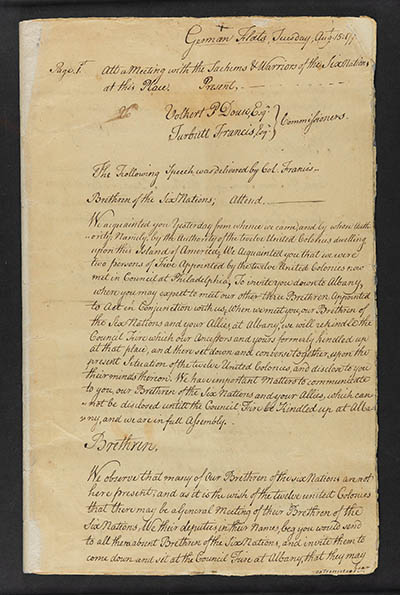 German Flats, Tuesday, Aug. 15. 177
Page 1st. Att a Meeting with the Sachims & Warriors of the Six Nations
at this Place.
Present.
Volkert P Douw, Esqr.
Turbutt Francis, Esqr.
Commissioners.
The Following Speech was delivered by Col. Francis..
Brethren of the Six Nations; Attend.
We acquainted you Yesterday from whence we came, and by whose Auth-
ority, Namely, by the Authority of the twelve United Colonies dwelling
upon this Island of America; We Acquainted you that we were
two persons of Five Appointed by the twelve United Colonies now
met in Council at Philadelphia, To invite you down to Albany,
where you may expect to meet our other three Brethren Appointed
to Act in Conjunction with us, When we meet you, our Brethren of
the Six Nations and your Allies, at Albany, we will rekindle the
Council Fire which our Ancestors and yours formerly kindled up
at that place, and there set down and converse together, upon the
present Situation of the twelve United Colonies, and disclose to you
their minds thereon. We have important Matters to communicate
to you, our Brethren of the Six Nations and your Allies, which can-
not be disclosed untill the Council Fire be Kindled up at Alba-
ny, and we are in full Assembly.
Brethren.
We observe that many of Our Brethren of the six Nations are not
here present; and as it is the wish of the twelve united Colonies
that there may be a General Meeting of their Brethren of the
Six Nations, We their deputies, in their Names, beg you would send
to all the absent Brethren of the Six Nations, and invite them to
come down and set at the Council Fire at Albany, that they may